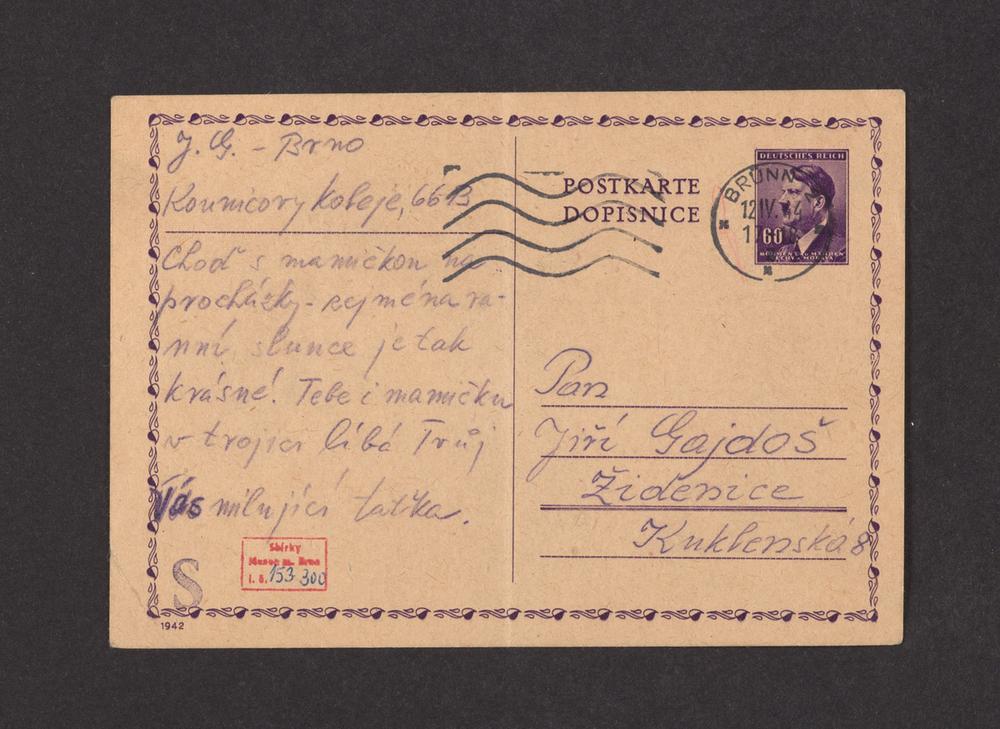 J. G. - Brno
Kounicovy koleje, 66 B
Choď s mamičkou na
procházky - zejména ra-
nní slunce je tak
krásné! Tebe i mamičku
v trojici líbá Tvůj
Vás milující taťka.
S
Sbírky
Musea m. Brna
i. č. 153 300
1942
POSTKARTE
DOPISNICE
DEUTSCHES REICH
60
BÖHMEN UND MÄHREN
ČECHY A MORAVA
BRÜNN
12 IV. 44
Pan
Jiří Gajdoš
Židenice
Kuklenská 8